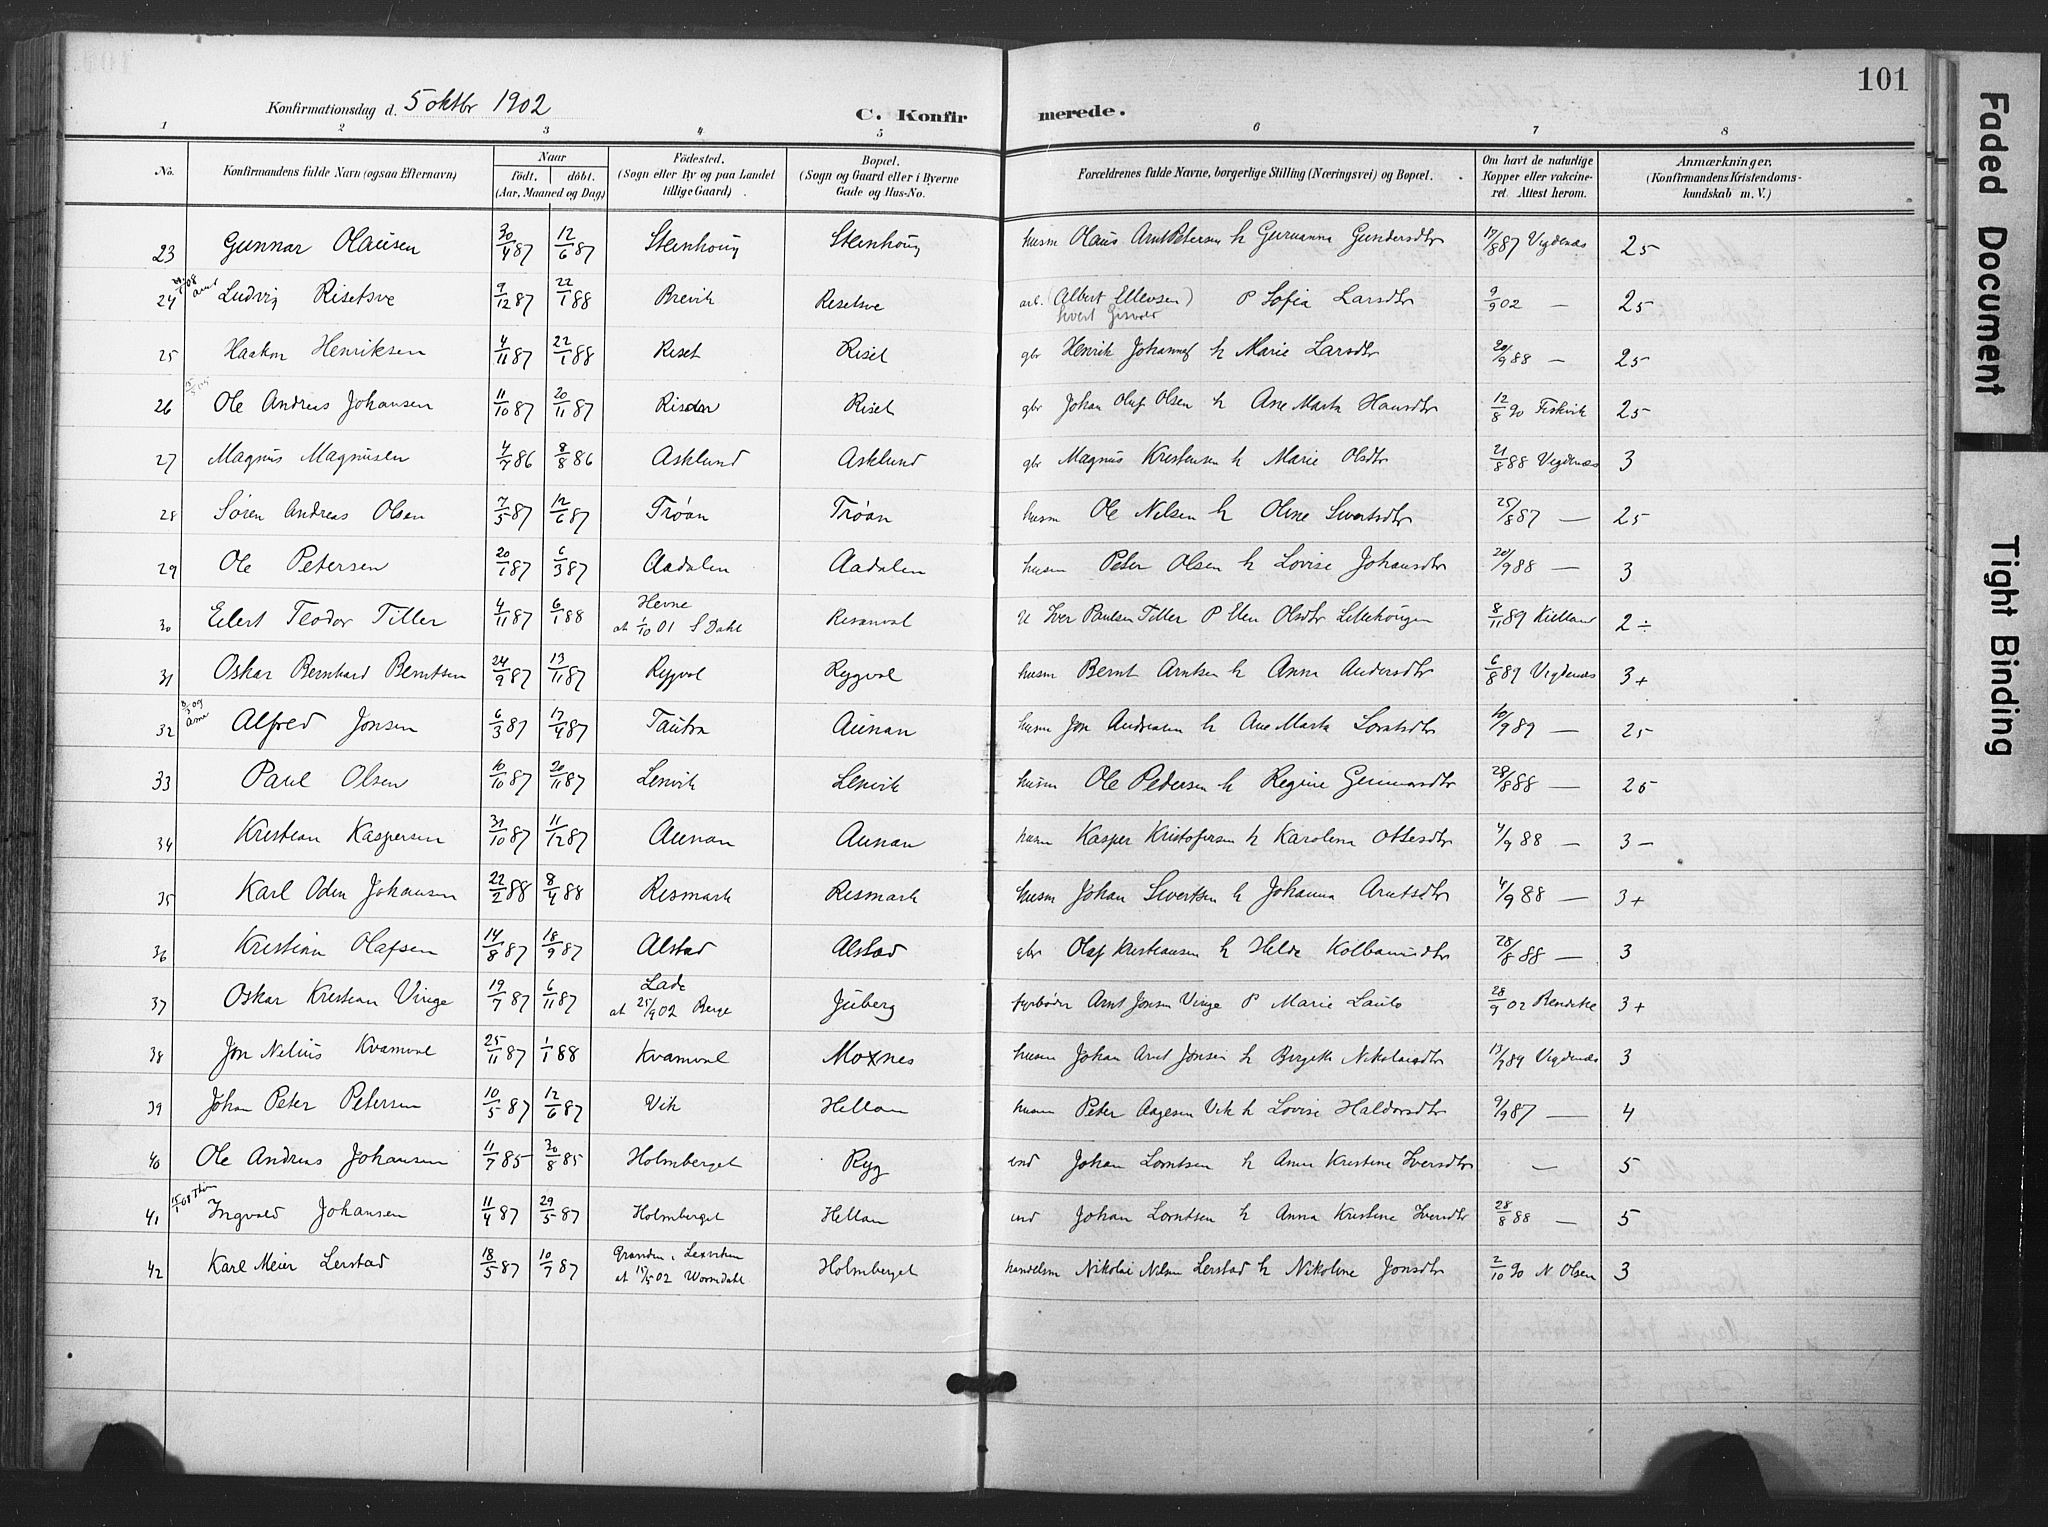 101
Konfirmationsdag d. 5 oktbr 1902
C. Konfirmerede.
1 2 3 4 5 6 7 8
No. Konfirmandens fulde Navn (ogsaa Efternavn) Naar født. døbt. (Aar, Maaned og Dag) Fødested. (Sogn eller By og paa Landet tillige Gaard) Bopæl. (Sogn og Gaard eller i Byerne Gade og Hus-No. Forældrenes fulde Navne, borgerlige Stilling (Næringsvei) og Bopæl. Om havt de naturlige Kopper eller vakcineret. Attest herom. Anmærkninger. (Konfirmandens Kristendomskundskab m. V.)
23 Gunnar Olausen 30/4 87 12/6 87 Steinhoug Steinhoug husm Olaus Arnt Petersen h Gurianna Gundersdtr 17/8 87 Vigdenæs 25
24 Ludvig Risetsve 9/12 87 22/1 88 Brevik Risetsve arb. (Albert Ellevsen) P Sofia Larsdtr 9/9 02 — 25
25 Haakon Henriksen 4/11 87 22/1 88 Riset Riset gbr Henrik Johannes h Marie Larsdtr 20/9 88 — 25
26 Ole Andreas Johansen 11/10 87 20/11 87 Risdar Riset gbr Johan Oluf Olsen h Ane Marta Hansdtr 12/8 90 Fiskvik 25
27 Magnus Magnusen 4/7 86 8/8 86 Asklund Asklund gbr Magnus Kristensen h Marie Olsdtr 21/8 88 Vigdenæs 3
28 Søren Andreas Olsen 7/5 87 12/6 87 Trøan Trøan husm Ole Nilsen h Oline Sivertsdtr 25/8 87 — 25
29 Ole Petersen 20/1 87 6/3 87 Aadalen Aadalen husm Peter Olsen h Lovise Johansdtr 20/9 88 — 3
30 Eilert Teodor Tiller 4/11 87 6/1 88 Hevne at 1/10 01 S Dahl Risanval Iver Paulsen Tiller P Elen Olsdtr Litlehougen 8/11 89 Kielland 2 ÷
31 Oskar Bernhard Berntsen 24/9 87 13/11 87 Rygval Rygval husm Bernt Arntsen h Anna Andersdtr 6/8 89 Vigdenæs 3+
32 Alfred Jonsen 6/3 87 17/4 87 Tautra Aunan husm Jon Andreasen h Ane Marta Lorntsdtr 10/9 89 — 25
33 Paul Olsen 10/10 87 20/11 87 Lenvik Lenvik husm Ole Pedersen h Regine Gunnarsdtr 28/8 88 — 25
34 Kristian Kaspersen 31/10 87 11/12 87 Aunan Aunan husm Kasper Kristofersen h Karolina Ottesdtr 4/9 88 — 3 —
35 Karl Odin Johansen 22/2 88 8/4 88 Rismark Rismark husm Johan Sivertsen h Johanna Arntsdtr 4/9 88 — 3+
36 Kristian Olafsen 14/8 87 18/9 87 Alstad Alstad gbr Olaf Kristiansen h Hilda Kolbanusdtr 28/8 88 — 3
37 Oskar Kristian Vinge 19/7 87 6/11 87 Lade at 25/9 02 Berge Juberg fyrbøder Arnt Jonsen Vinge P Marie Laulo 28/9 02 Bendike 3+
38 Jon Nelius Kvamval 25/11 87 1/1 88 Kvamval Moxnes husm Johan Arnt Jonsen h Birgitte Nikolaisdtr 13/9 89 Vigdenæs 3
39 Johan Peter Petersen 10/5 87 12/6 87 Vik Hellan husm Peter Aagesen Vik h Lovise Haldorsdtr 9/9 87 — 4
40 Ole Andreas Johansen 11/7 85 30/8 85 Holmberget Ryg ind Johan Lorntsen h Anna Kristine Iversdtr — 5
41 Ingvald Johansen 11/4 87 29/5 87 Holmberget Hellan ind Johan Lorntsen h Anna Kristine Iversdtr 28/8 88 — 5
42 Karl Meier Lerstad 18/5 87 10/7 87 Granden i Lexviken at 15/5 02 Wormdahl Holmberget handelsm Nikolai Nilsen Lerstad h Nikoline Jonsdtr 2/10 90 N Olsen 3
Faded Document
Tight Binding